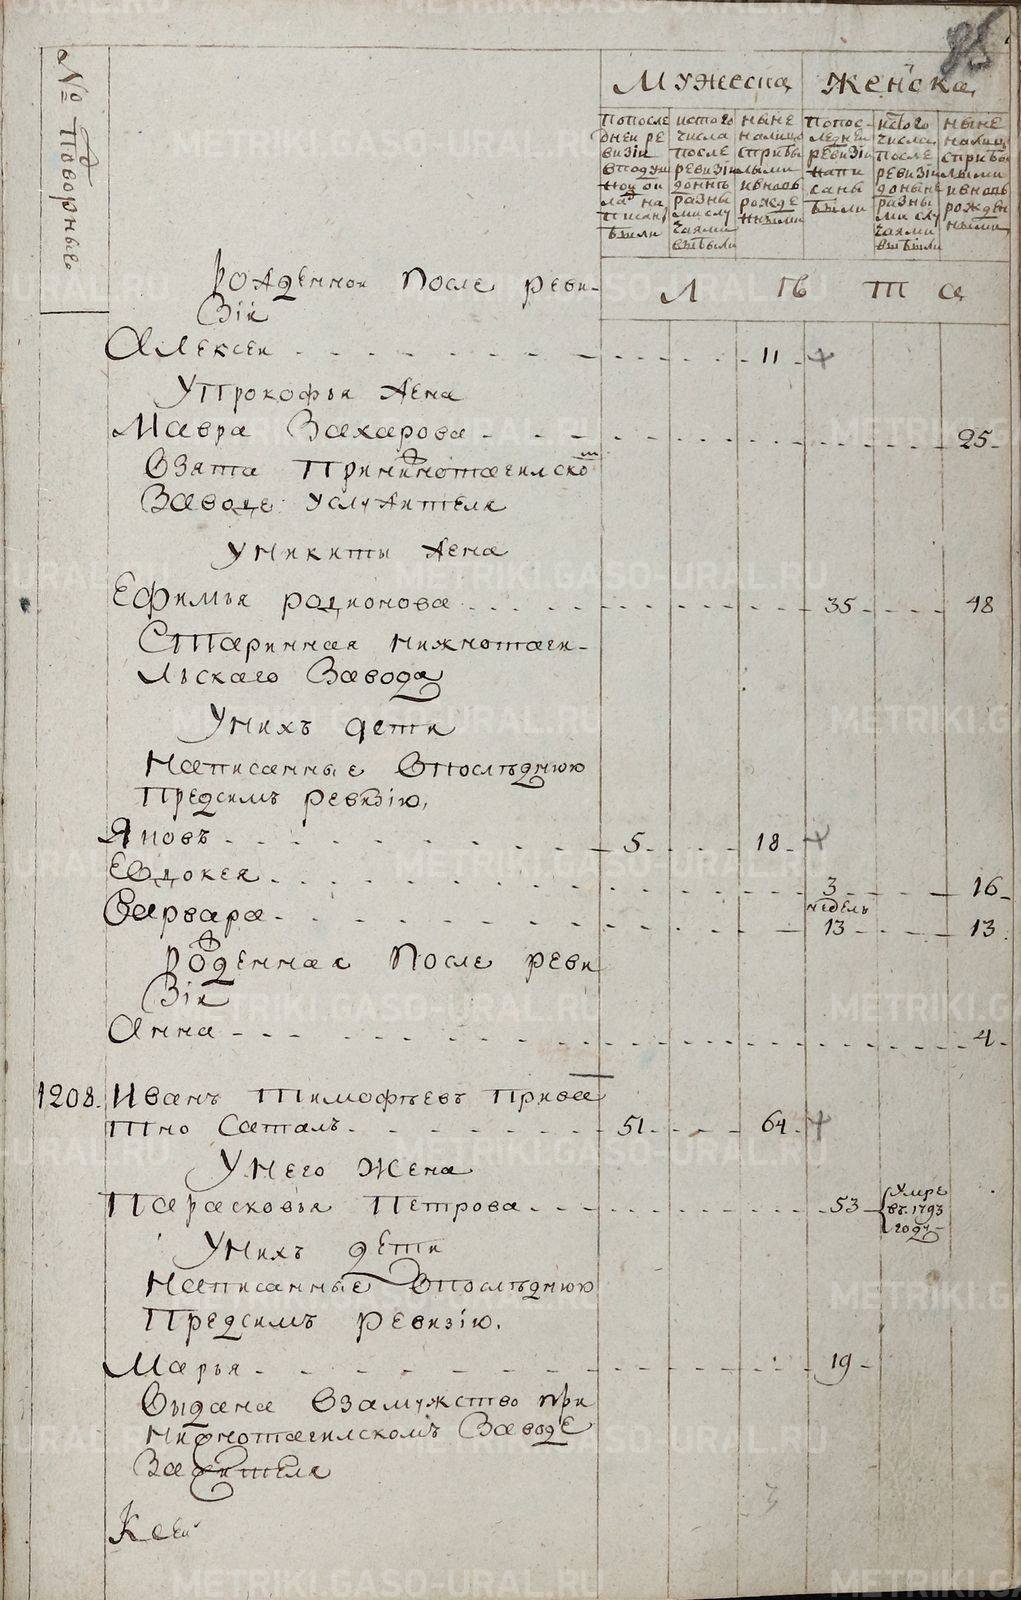 85
№ Подворные
Мужеска
Женска
по после
дней ре
визіи
в подуш
ной ок
лад на
писаны
были
ис того
числа
после
ревизіи
до ныне
разны
ми слу
чаями
выбыли
ныне
на лицо
с прибы
лыми
и вновь
рожде
нными
по пос-
ледней
ревизіи
напи
саны
были
ис того
числа
после
ревизіи
до ныне
разны
ми слу
чаями
выбыли
ныне
на лицо
с прибы
лыми
и вновь
рожден
ными
Л ѣ т а
Рожденной после реви-
зіи
Алексей 11
У Прокофья жена
Мавра Захарова 25
Взята при Нижнотагилско
Заводе у служителя
У Никиты жена
Ефимья Родионова 35 48
Старинная Нижнотаги-
льскаго завода
У них дети
Написанные в последнюю
пред сим ревизію,
Яковъ 5 18
Евдокея 3 16
недель
Варвара 13 13
Рожденная после реви
зіи
Анна 4
1208. Иванъ Тимофеевъ Прива
тно Саталъ 51 64
У него жена
Парасковья Петрова 53 Умре
въ 1793
году
У нихъ дети
Написанные в последнюю
пред симъ ревизію.
Марья 19
Выдана в замужство при
Нижнотагилскомъ заводе
за жителя
К сей
METRIKI.GASO-URAL.RU